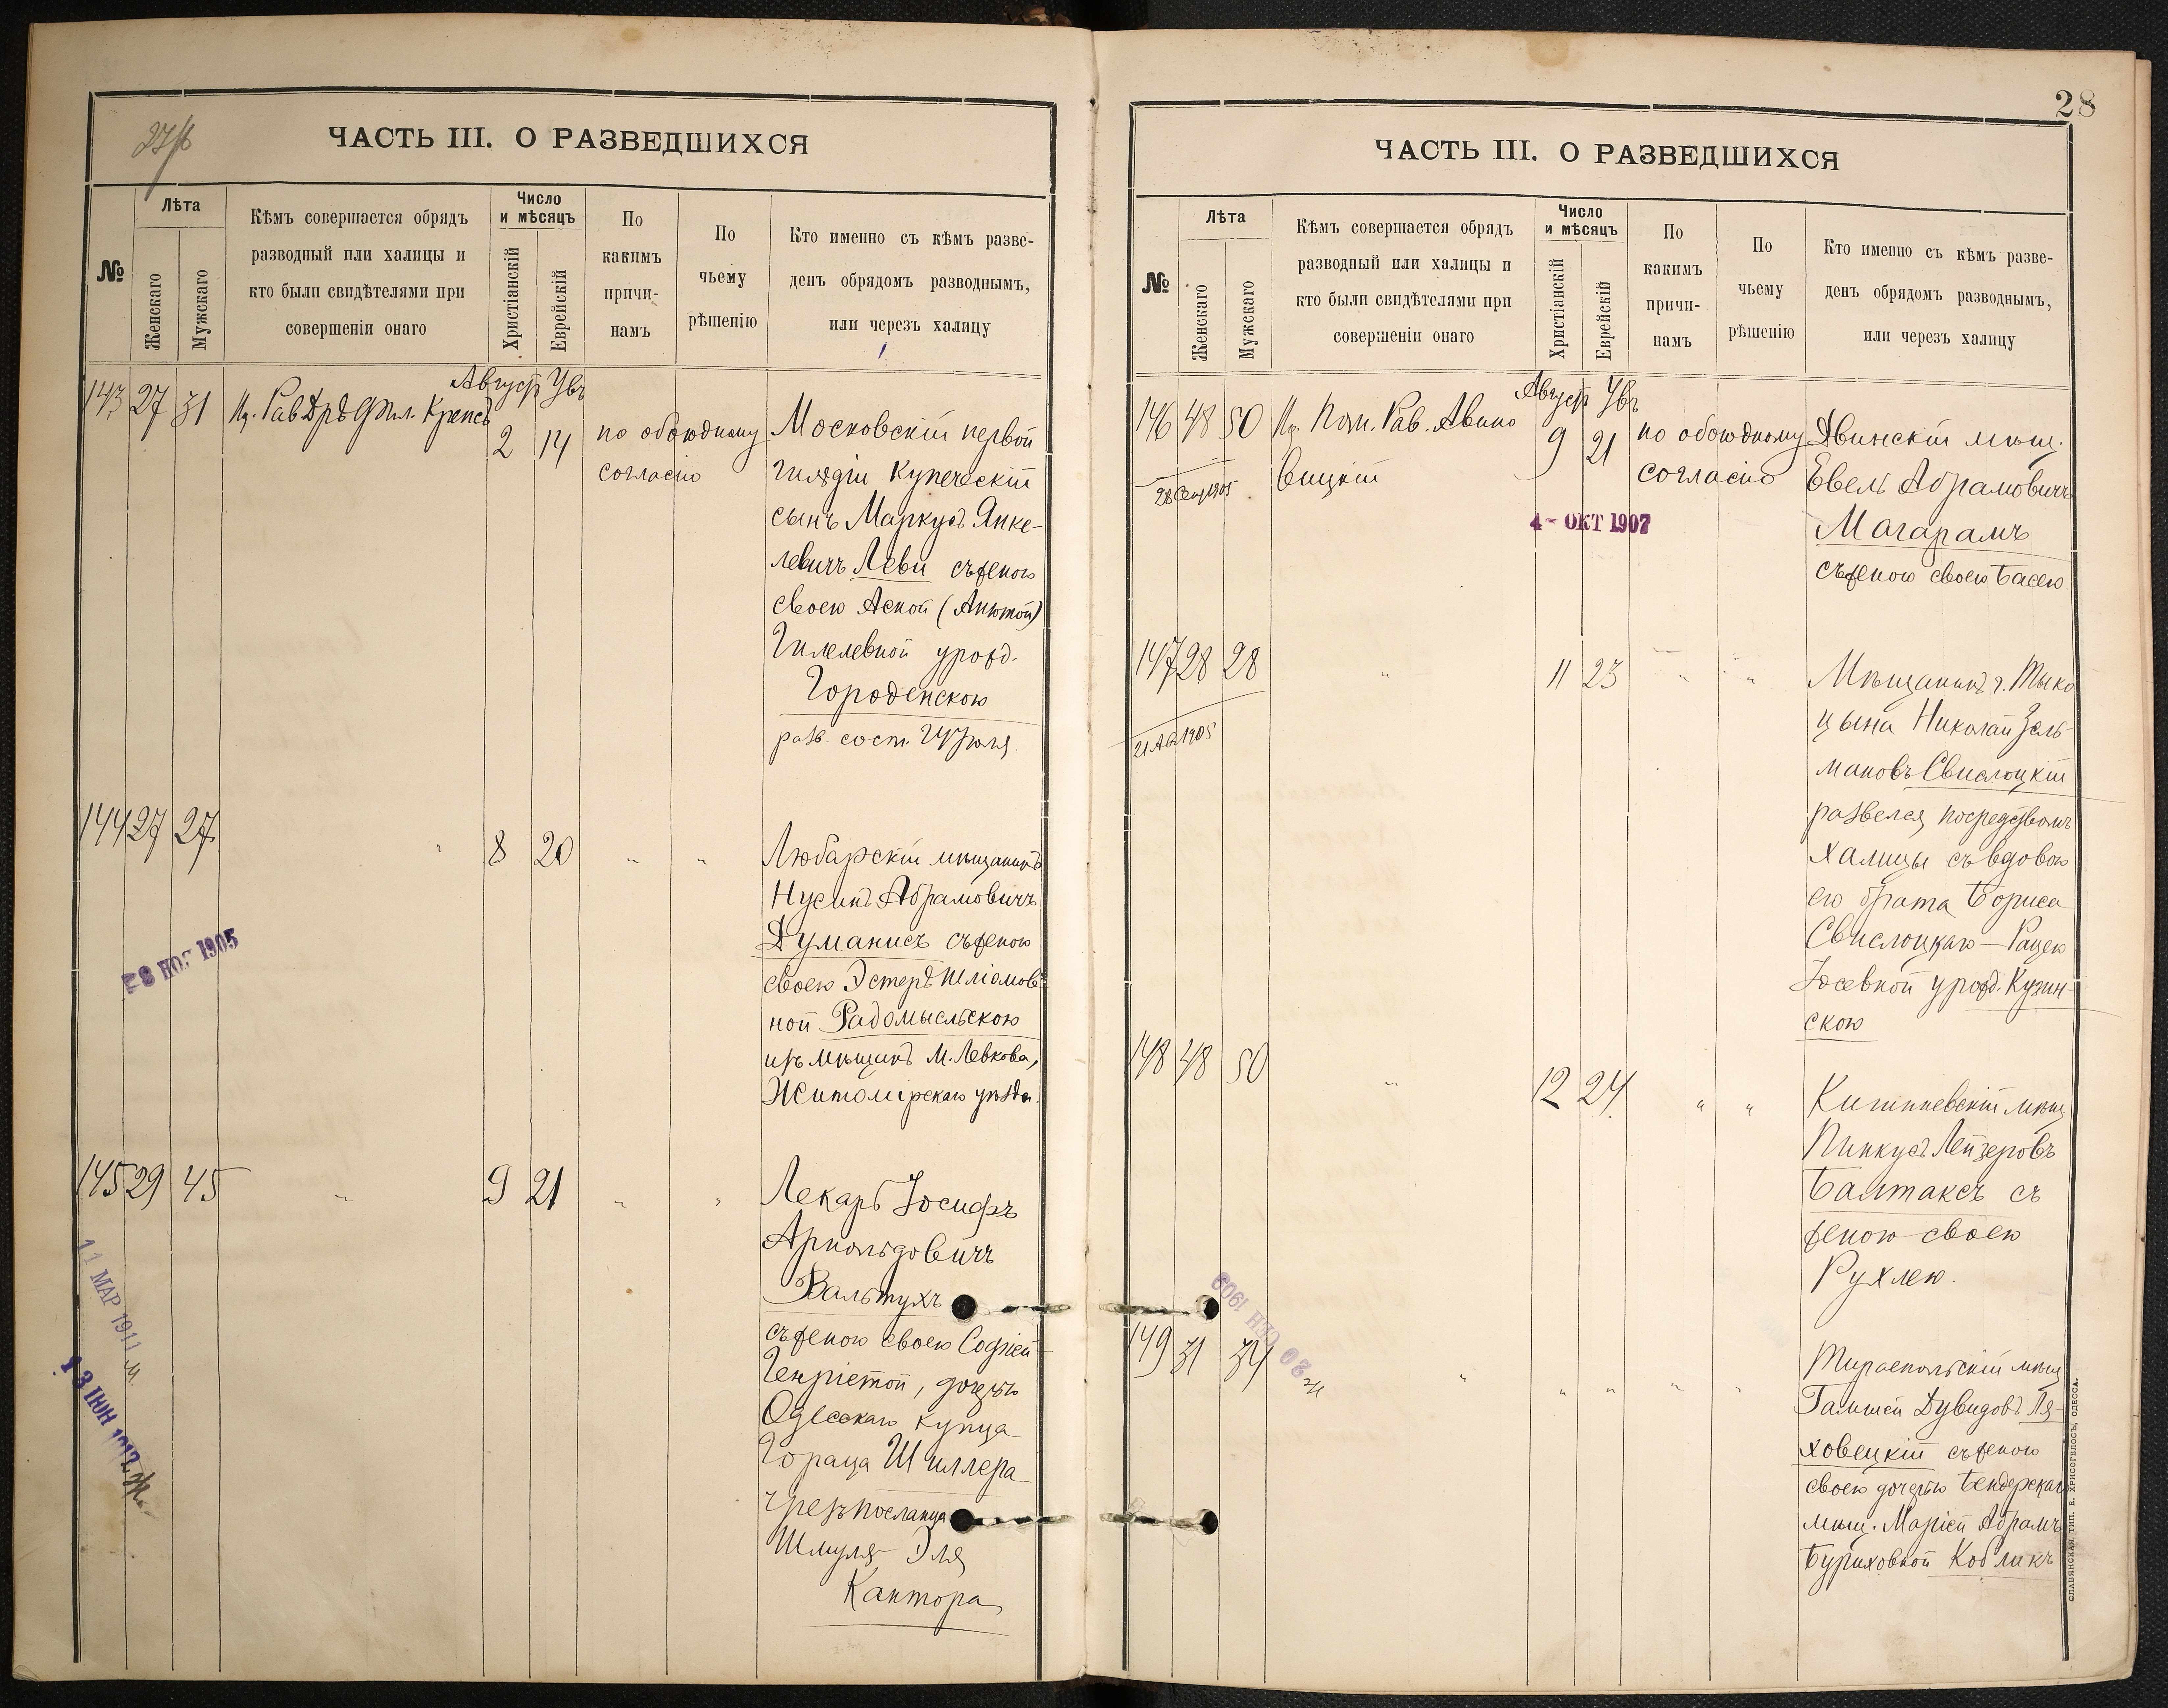 ЧАСТЬ III. О РАЗВЕДШИХСЯ
№
Лѣта
Женскаго
Мужскаго
Кѣмъ совершается обрядъ
разводный или халицы и
кто были свидѣтелями при
совершеніи онаго
Число
и мѣсяцъ
Христіанскій
Еврейскій
По
какимъ
причи-
намъ
По
чьему
рѣшенію
Кто именно съ кѣмъ разве-
денъ обрядомъ разводнымъ,
или черезъ халицу
Август
143 27 31 Рав Дръ Фил. Крепсъ
2 14 по обоюдному
согласію
Московскій первой
гильдіи купеческій
сынъ Маркусъ Янке-
левичъ Леви съ женою
своею Асной (Анютой)
Гилелевной урожд.
Городенскою
разв. сост. 24 Іюля.
144 27 27 " 8 20 " "
Любарскій мѣщанинъ
Нусинъ Абрамовичъ
Думанисъ съ женою
своею Эстеръ Шліомов-
ной Радомысльскою
изъ мѣщанъ М. Левкова,
Житомірскаго уѣзда.
28 НОЯ 1905
145 29 45 " 9 21 " "
Лекарь Іосифъ
Арнольдовичъ
Вальтухъ
съ женою своею Софіей-
Генріетой, дочерью
Одесскаго купца
Гораца Шиллера
чрезъ посланца
Шмуля-Эля
Кантора
11 МАР 1911
13 ІЮН 1912
28
ЧАСТЬ III. О РАЗВЕДШИХСЯ
№
Лѣта
Женскаго
Мужскаго
Кѣмъ совершается обрядъ
разводный или халицы и
кто были свидѣтелями при
совершеніи онаго
Число
и мѣсяцъ
Христіанскій
Еврейскій
По
какимъ
причи-
намъ
По
чьему
рѣшенію
Кто именно съ кѣмъ разве-
денъ обрядомъ разводнымъ,
или черезъ халицу
Август
146 48 50 Пом. Рав. Авино
вицкій
9 21 по обоюдному
согласію
28 Сен 1905
4 - ОКТ 1907
Двинскій мѣщ.
Евель Абрамовичъ
Магарамъ
съ женою своею Басею
147 28 28 " 11 23 " "
21 Ав 1905
Мѣщанинъ г. Тыко
цына Николай Зель-
мановъ Свислоцкій
развелся посредствомъ
халицы съ вдовою
его брата Бориса
Свислоцкаго — Рацею
Іосевной урожд. Кузин-
скою
148 48 50 " 12 24 " "
Кишиневскій мѣщ
Пинкусъ Лейзеровъ
Балтаксъ съ
женою своею
Рухлею.
20 СЕН 1909
149 31 34 " " " " "
Тираспольскій мѣщ
Гамшей Дувидовъ Ля-
ховецкій съ женою
своею дочерью Бендерскаго
мѣщ. Маріей Абрамъ
Буриховной Кобликъ
СЛАВЯНСКАЯ ТИП. Е. ХРИСОГЕЛОСЪ, ОДЕССА.